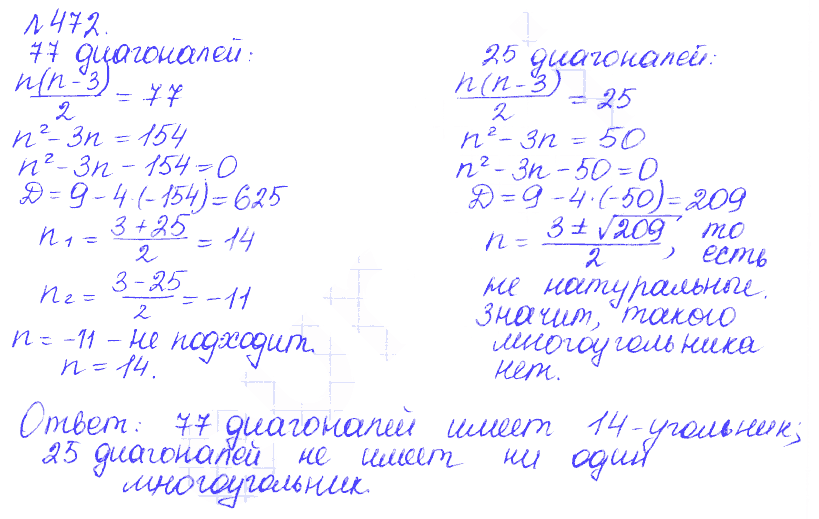 №472.
77 диагоналей:
n(n-3)/2 = 77
n² - 3n = 154
n² - 3n - 154 = 0
D = 9 - 4·(-154) = 625
n₁ = (3+25)/2 = 14
n₂ = (3-25)/2 = -11
n = -11 - не подходит.
n = 14.
25 диагоналей:
n(n-3)/2 = 25
n² - 3n = 50
n² - 3n - 50 = 0
D = 9 - 4·(-50) = 209
n = (3 ± √209)/2, то есть
не натуральные.
Значит, такого
многоугольника
нет.
Ответ: 77 диагоналей имеет 14-угольник;
25 диагоналей не имеет ни один
многоугольник.